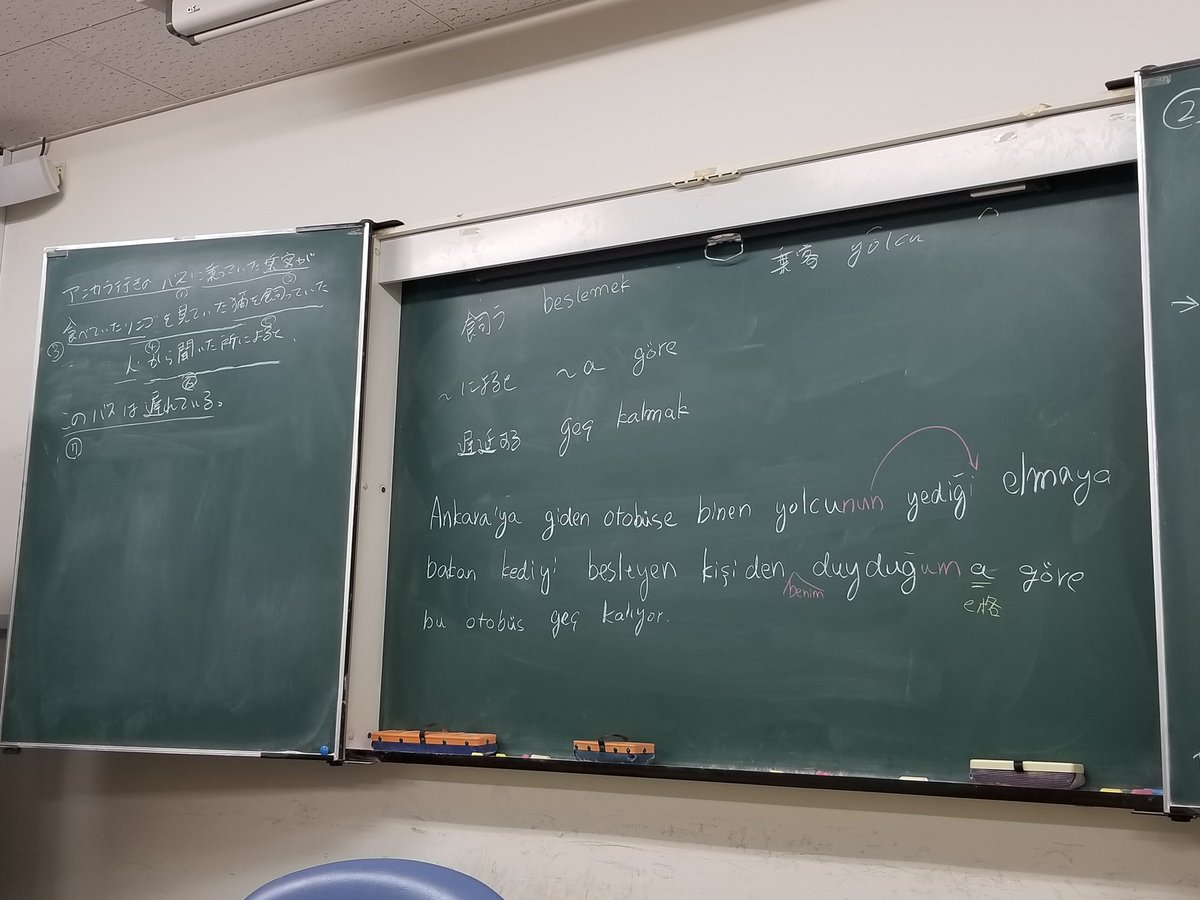 アンカラ行きの バスに乗っていた乗客が
①
②
食べていたリンゴを見ていた猫を飼っていた
③
④
⑤
人から聞いた所によると、
⑥
このバスは遅れている。
⑦
乗客 yolcu
飼う beslemek
~によると ~a göre
遅延する geç kalmak
Ankara'ya giden otobüse binen yolcunun yediği elmaya
bakan kediyi besleyen kişiden duyduğuma göre
benim
e格
bu otobüs geç kalıyor.
②
→